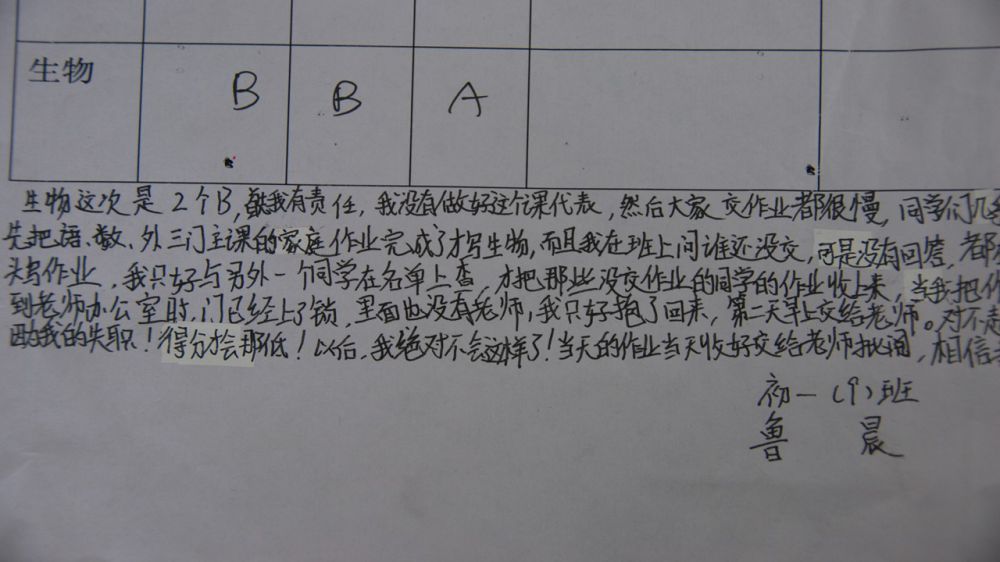 生物
B B A
生物这次是2个B,就我有责任,我没有做好这个课代表,然后大家交作业都很慢,同学们几
先把语、数、外三门主课的家庭作业完成了才写生物,而且我在班上问谁还没交,可是没有回答,都
头写作业,我只好与另外一个同学在名单上查,才把那些没交作业的同学的作业收上来,当我把作
到老师办公室时,门已经上了锁,里面也没有老师,我只好抱了回来,第二天早上交给老师。对不起
我的失职!得分才会那低!以后,我绝对不会这样了!当天的作业当天收好交给老师批阅,相信
初一(9)班
鲁晨